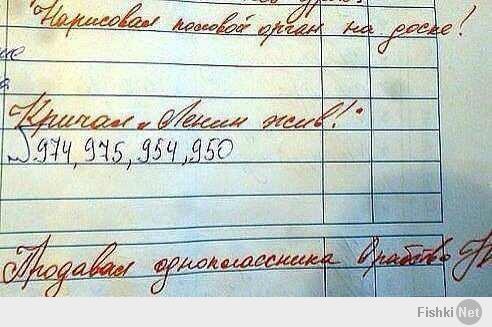 Нарисовал половой орган на доске!
Кричал "Ленин жив!"
974, 975, 954, 950
Продавал одноклассника в рабство
Fishki Net